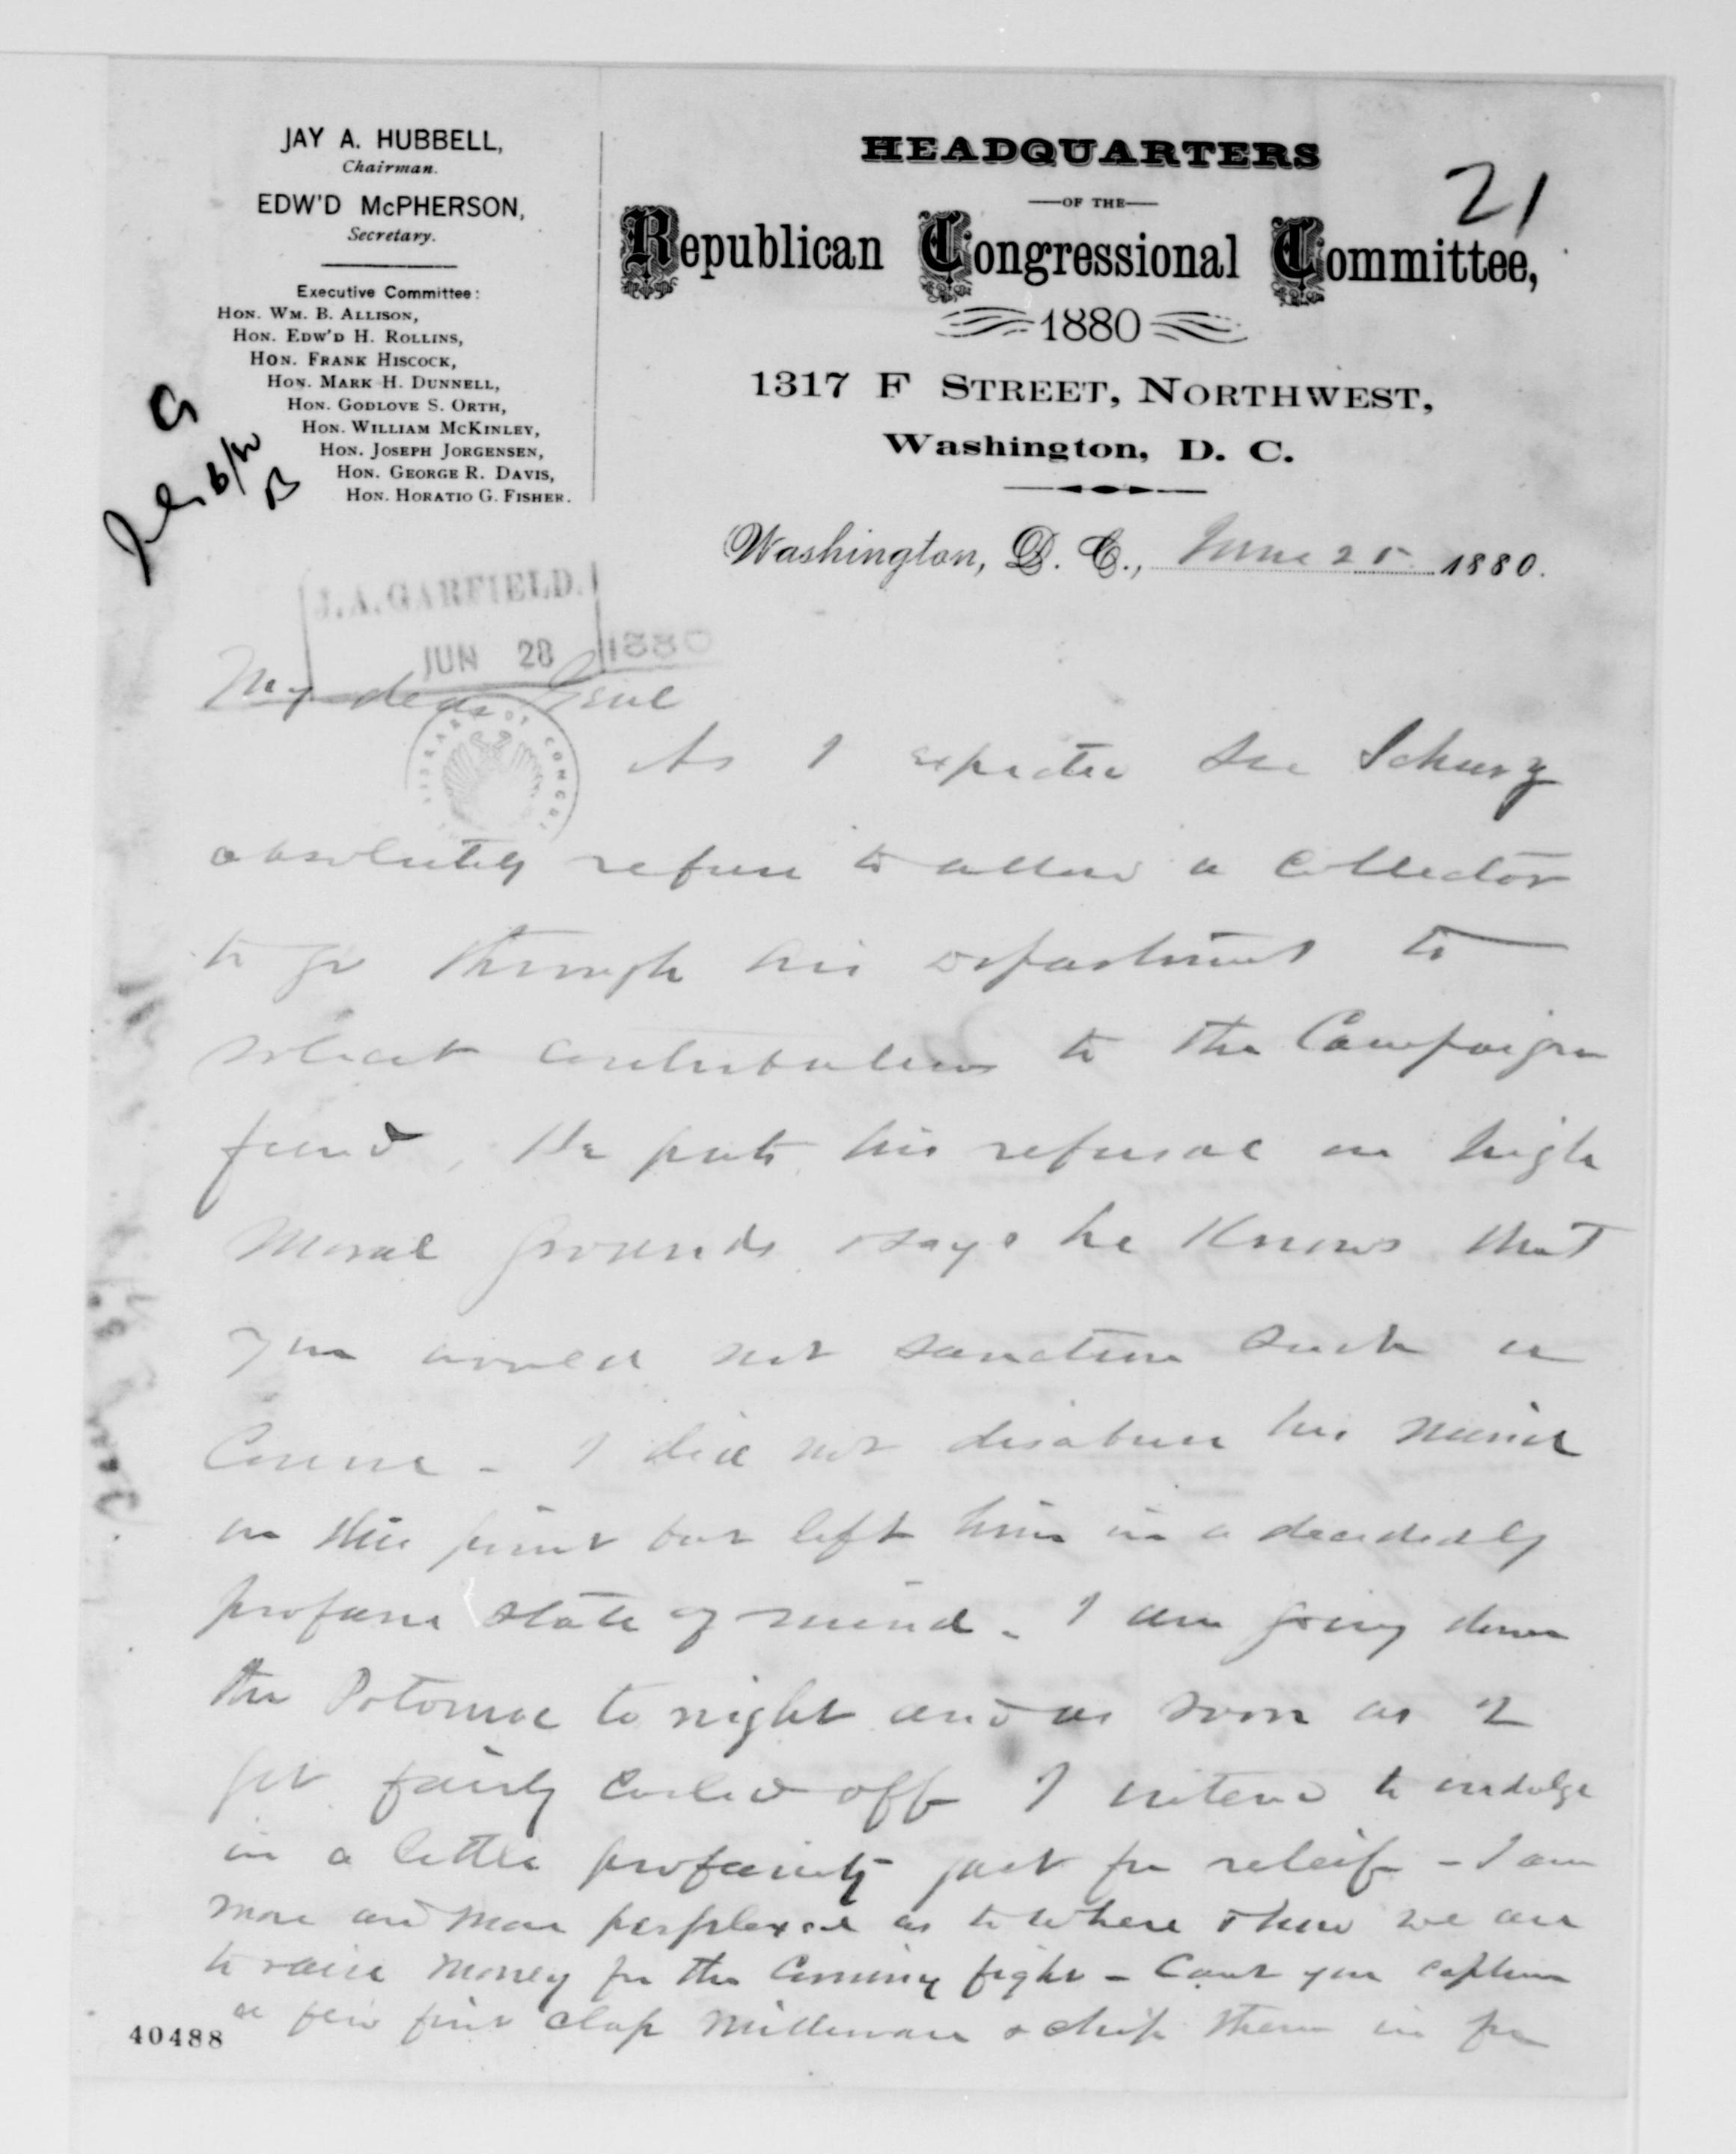 JAY A. HUBBELL,
Chairman.
EDW'D McPHERSON,
Secretary.
Executive Committee:
HON. WM. B. ALLISON,
HON. EDW'D H. ROLLINS,
HON. FRANK HISCOCK,
HON. MARK H. DUNNELL,
HON. GODLOVE S. ORTH,
HON. WILLIAM McKINLEY,
HON. JOSEPH JORGENSEN,
HON. GEORGE R. DAVIS,
HON. HORATIO G. FISHER.
HEADQUARTERS
OF THE
Republican Congressional Committee,
21
1880
1317 F STREET, NORTHWEST,
Washington, D. C.
Washington, D. C., June 25 1880.
J. A. GARFIELD.
JUN 28 1880
My dear Genl
LIBRARY OF CONGRESS
As I expected Schurz
absolutely refuses to allow a collector
to go through his department to
solicit contributions to the Campaign
fund, He puts his refusal on high
moral grounds & says he Knows that
you would not sanction such a
Course - I did not disabuse his mind
on this point but left him in a decidedly
profane state of mind - I am going down
the Potomac to night and as soon as I
get fairly cooled off I intend to indulge
in a little profanity just for releif - I am
more and more perplexed as to where & how we are
to raise money for the Coming fight - Cant you capture
a few first class Millionaires & chip them in for
40488